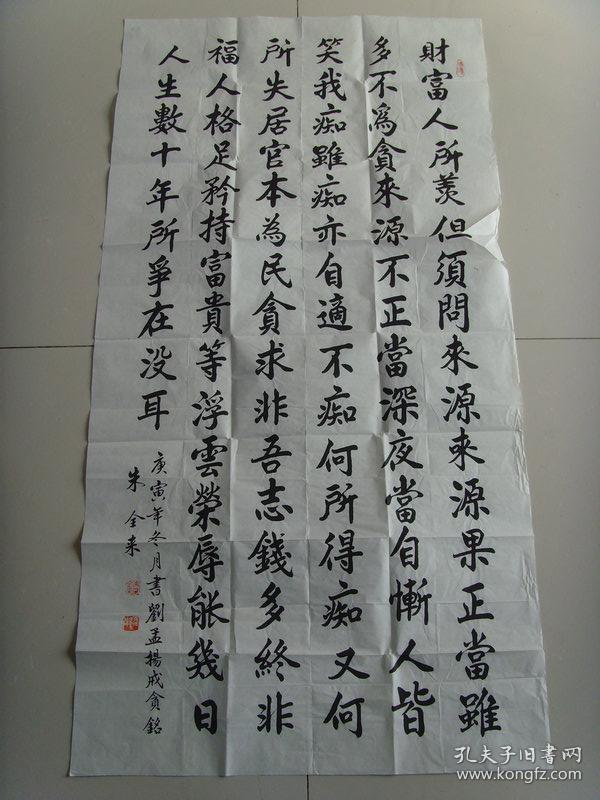 財富人所羨但須問來源來源果正當雖
多不為貪來源不正當深夜當自慚人皆
笑我痴雖痴亦自適不痴何所得痴又何
所失居官本為民貪求非吾志錢多終非
福人格足矜持富貴等浮雲榮辱能幾日
人生數十年所爭在没耳
庚寅年冬月書劉孟揚戒貪銘
朱全来
孔夫子旧書网
www.kongfz.com